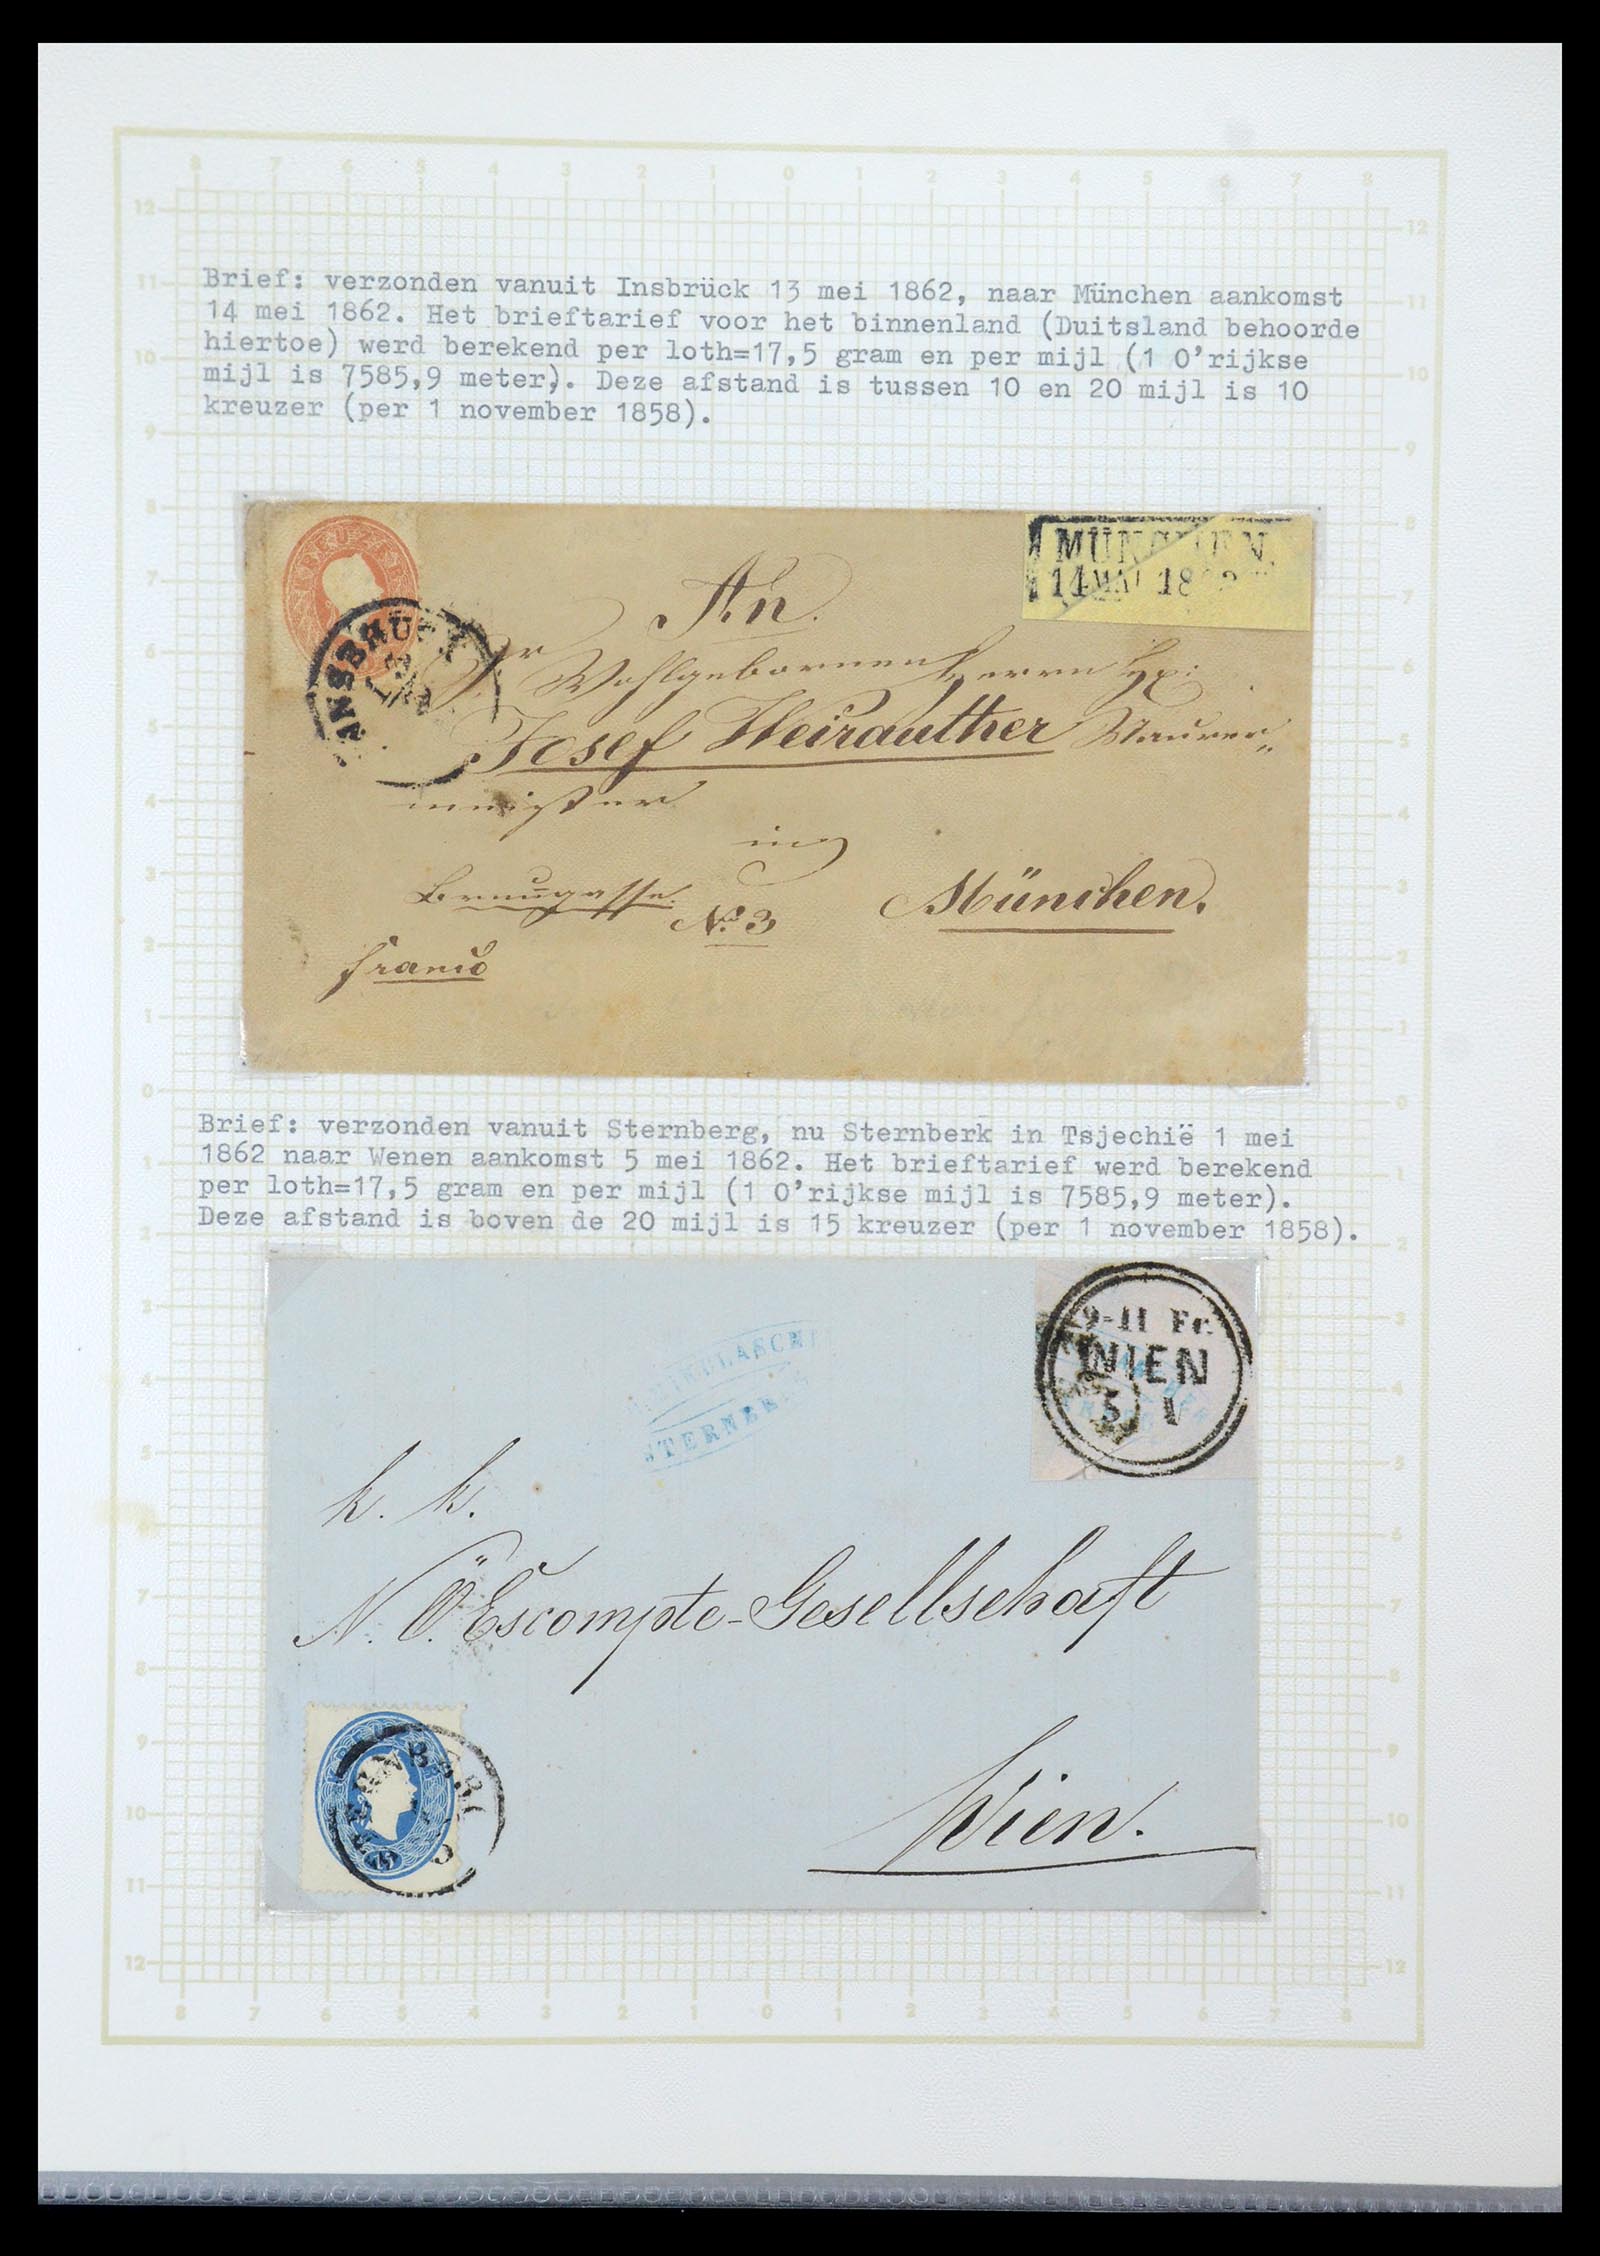 Brief: verzonden vanuit Insbrück 13 mei 1862, naar München aankomst
14 mei 1862. Het brieftarief voor het binnenland (Duitsland behoorde
hiertoe) werd berekend per loth=17,5 gram en per mijl (1 O'rijkse
mijl is 7585,9 meter). Deze afstand is tussen 10 en 20 mijl is 10
kreuzer (per 1 november 1858).
MÜNCHEN
14 MAI 18
An
Wohlgebornen Herrn
Josef Heirauther Maurer"
meister
in
München.
No. 3
franco
Brief: verzonden vanuit Sternberg, nu Sternberk in Tsjechië 1 mei
1862 naar Wenen aankomst 5 mei 1862. Het brieftarief werd berekend
per loth=17,5 gram en per mijl (1 O'rijkse mijl is 7585,9 meter).
Deze afstand is boven de 20 mijl is 15 kreuzer (per 1 november 1858).
9-11 Fr.
WIEN
5
STERNBERG
k. k.
N. Ö. Escompte-Gesellschaft
Wien.
15